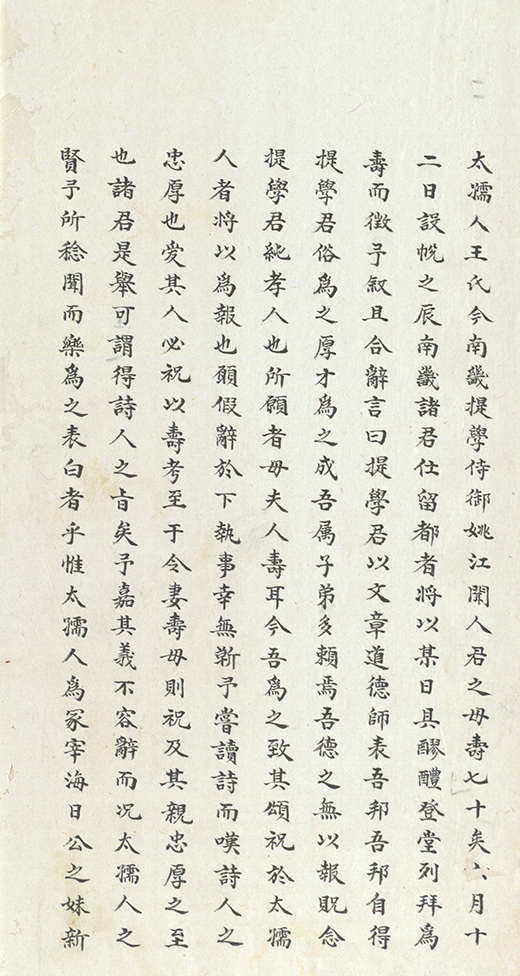 太孺人王氏今南畿提學侍御姚江聞人君之母壽七十矣六月十
二日設帨之辰南畿諸君仕留都者將以某日具醪醴登堂列拜爲
壽而徵予叙且合辭言曰提學君以文章道德師表吾邦吾邦自得
提學君俗爲之厚才爲之成吾属子弟多頼焉吾德之無以報貺念
提學君純孝人也所願者母夫人壽耳今吾爲之致其頌祝於太孺
人者將以爲報也願假辭於下執事幸無靳予嘗讀詩而嘆詩人之
忠厚也愛其人必祝以壽考至于令妻壽母則祝及其親忠厚之至
也諸君是舉可謂得詩人之㫖矣予嘉其義不容辭而况太孺人之
賢予所稔聞而樂爲之表白者乎惟太孺人爲冢宰海日公之妹新